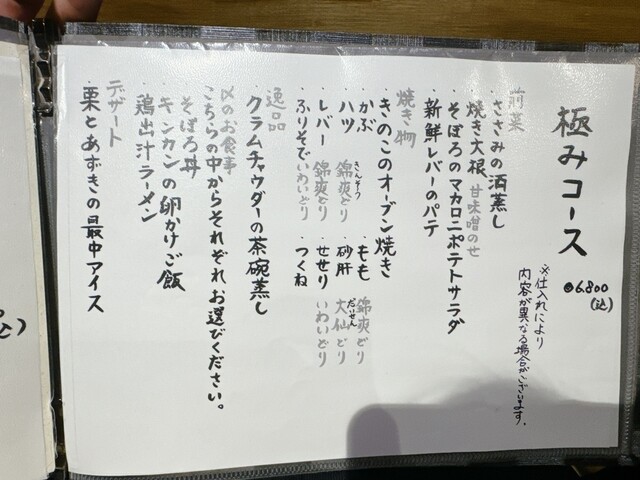 極みコース
●6.800
(込)
※仕入れにより
内容が異なる場合がございます。
前菜
・ささみの酒蒸し
・焼き大根 甘味噌のせ
・そぼろのマカロニポテトサラダ
・新鮮レバーのパテ
焼き物
・きのこのオーブン焼き
・かぶ ・もも 錦爽どり
・ハツ 錦爽どり きんそう ・砂肝 大仙どり だいせん
・レバー 錦爽どり ・せせり いわいどり
・ふりそで いわいどり ・つくね
逸品
・クラムチャウダーの茶碗蒸し
〆のお食事
こちらの中からそれぞれお選びください。
・そぼろ丼
・キンカンの卵かけご飯
・鶏出汁ラーメン
デザート
・栗とあずきの最中アイス
込)